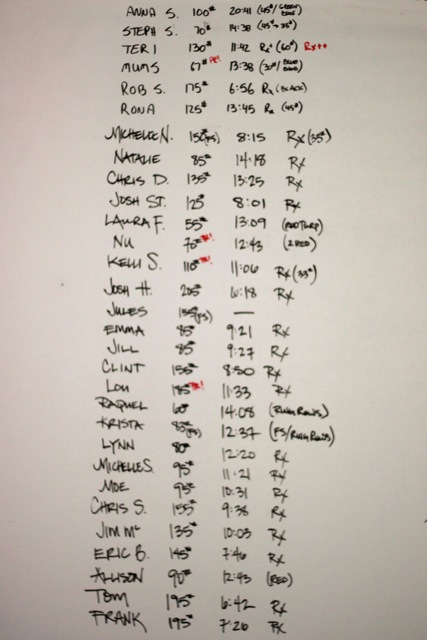 ANNA S. 100# 20:41 (45#/GREEN BLUE)
STEPH S. 70# 14:38 (45#→35#)
TERI 130# 11:42 Rx+ (60#) Rx++
MUMS 67# PR! 13:38 (30#/BLUE BAND)
ROB S. 175# 6:56 Rx (BLACK)
RONA 125# 13:45 Rx (45#)
MICHELLE N. 8:15 Rx (35#)
NATALIE 85# 14:18 Rx
CHRIS D. 135# 13:25 Rx
JOSH ST. 125# 8:01 Rx
LAURA F. 55# 13:09
NU 70# PR! 12:43 (2 RED)
KELLI S. 110# PR! 11:06 Rx (33#)
JOSH H. 205# 6:18 Rx
JULES (FS) —
EMMA 85# 9:21 Rx
JILL 85# 9:27 Rx
CLINT 155# 8:50 Rx
LOU 185# PR! 11:33 Rx
RAQUEL 60# 14:08 (RING ROWS)
KRISTA 83# (FS) 12:37 (FS/RING ROWS)
LYNN 80# 12:20 Rx
MICHELLE S. 95# 11:21 Rx
MOE 95# 10:31 Rx
CHRIS S. 155# 9:38 Rx
JIM Mc 135# 10:03 Rx
ERIC B. 145# 7:46 Rx
ALLISON 90# 12:43 (RED)
TOM 195# 6:42 Rx
FRANK 195# 7:26 Rx